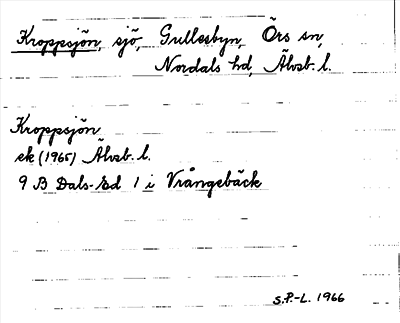 Kroppsjön, sjö, Gullesbyn, Örs sn,
Nordals hd, Älvsb. l.
Kroppsjön
ek (1965) Älvsb. l.
9 B Dals-Ed 1 i Vrångebäck
S.P.-L. 1966